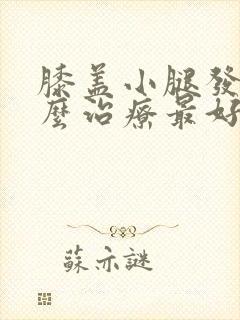 膝盖小腿發
麼治療最好
蘇亦謎